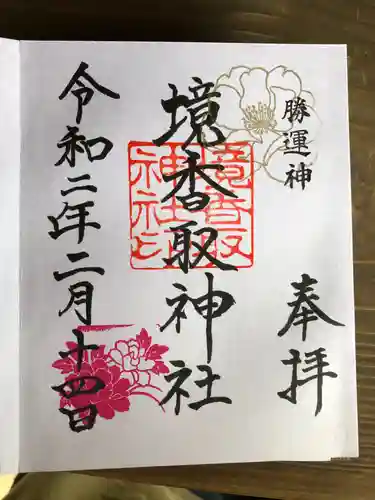 勝運神
奉拝
境香取神社
境香取
神社印
令和二年二月十四日